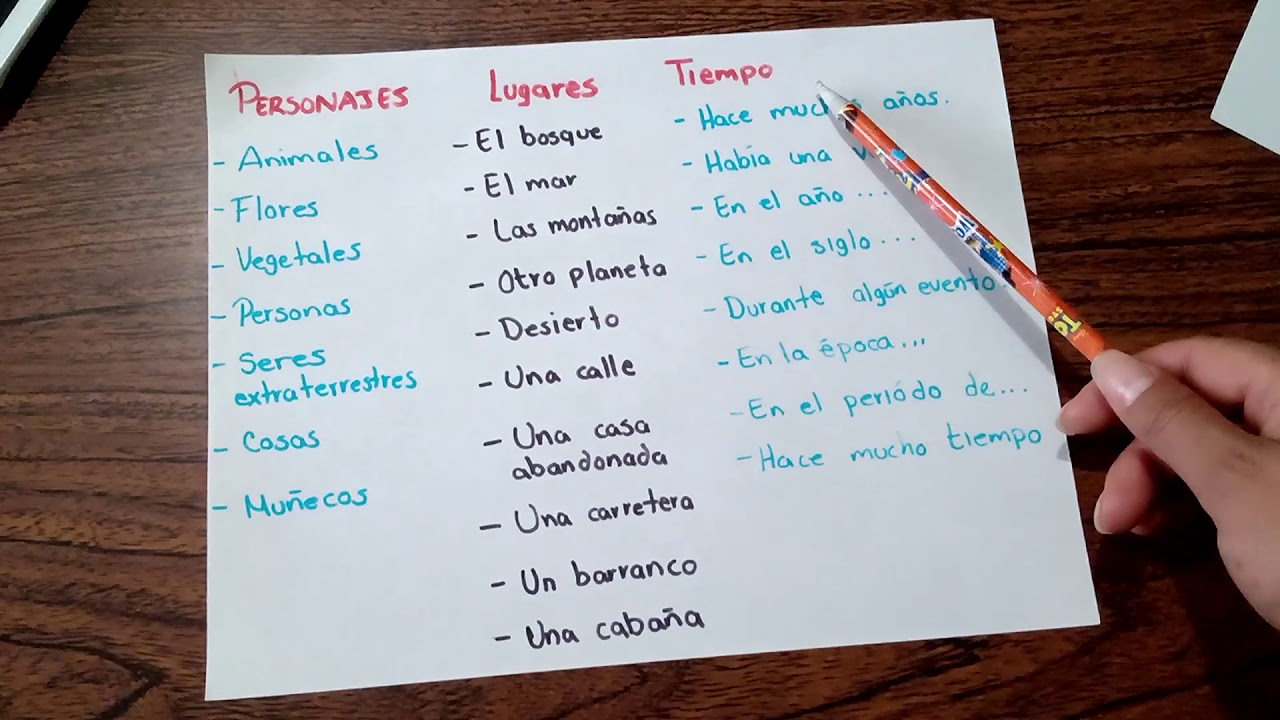 PERSONAJES
- Animales
- Flores
- Vegetales
- Personas
- Seres
extraterrestres
- Cosas
- Muñecos
Lugares
- El bosque
- El mar
- Las montañas
- Otro planeta
- Desierto
- Una calle
- Una casa
abandonada
- Una carretera
- Un barranco
- Una cabaña
Tiempo
- Hace años.
- Había una
- En el año ...
- En el siglo ...
- Durante algún evento.
- En la época...
- En el periódo de...
- Hace mucho tiempo